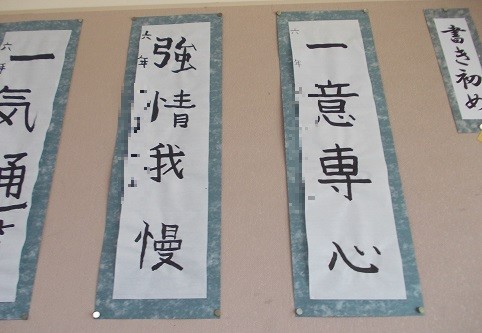 書き初め
一意専心
六年
強情我慢
六年
一気通
六年